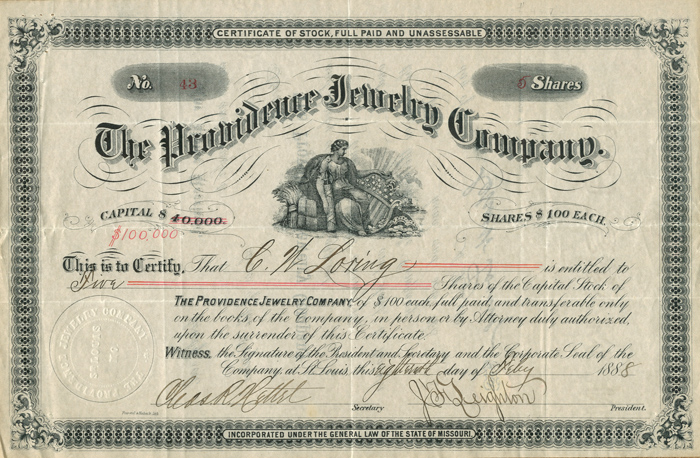 CERTIFICATE OF STOCK, FULL PAID AND UNASSESSABLE
No. 43
5 Shares
The Providence Jewelry Company.
CAPITAL $ 40,000.
$100,000
SHARES $100 EACH.
This is to Certify, That C. W. Loring is entitled to
Five Shares of the Capital Stock of
THE PROVIDENCE JEWELRY COMPANY, of $100 each, full paid, and transferable only
on the books of the Company, in person or by Attorney duly authorized,
upon the surrender of this Certificate.
Witness, the Signature of the President and Secretary and the Corporate Seal of the
Company at St. Louis, this day of Feby 1888
JEWELRY COMPANY
PROVIDENCE
Secretary
J. Leighton
President.
INCORPORATED UNDER THE GENERAL LAW OF THE STATE OF MISSOURI.